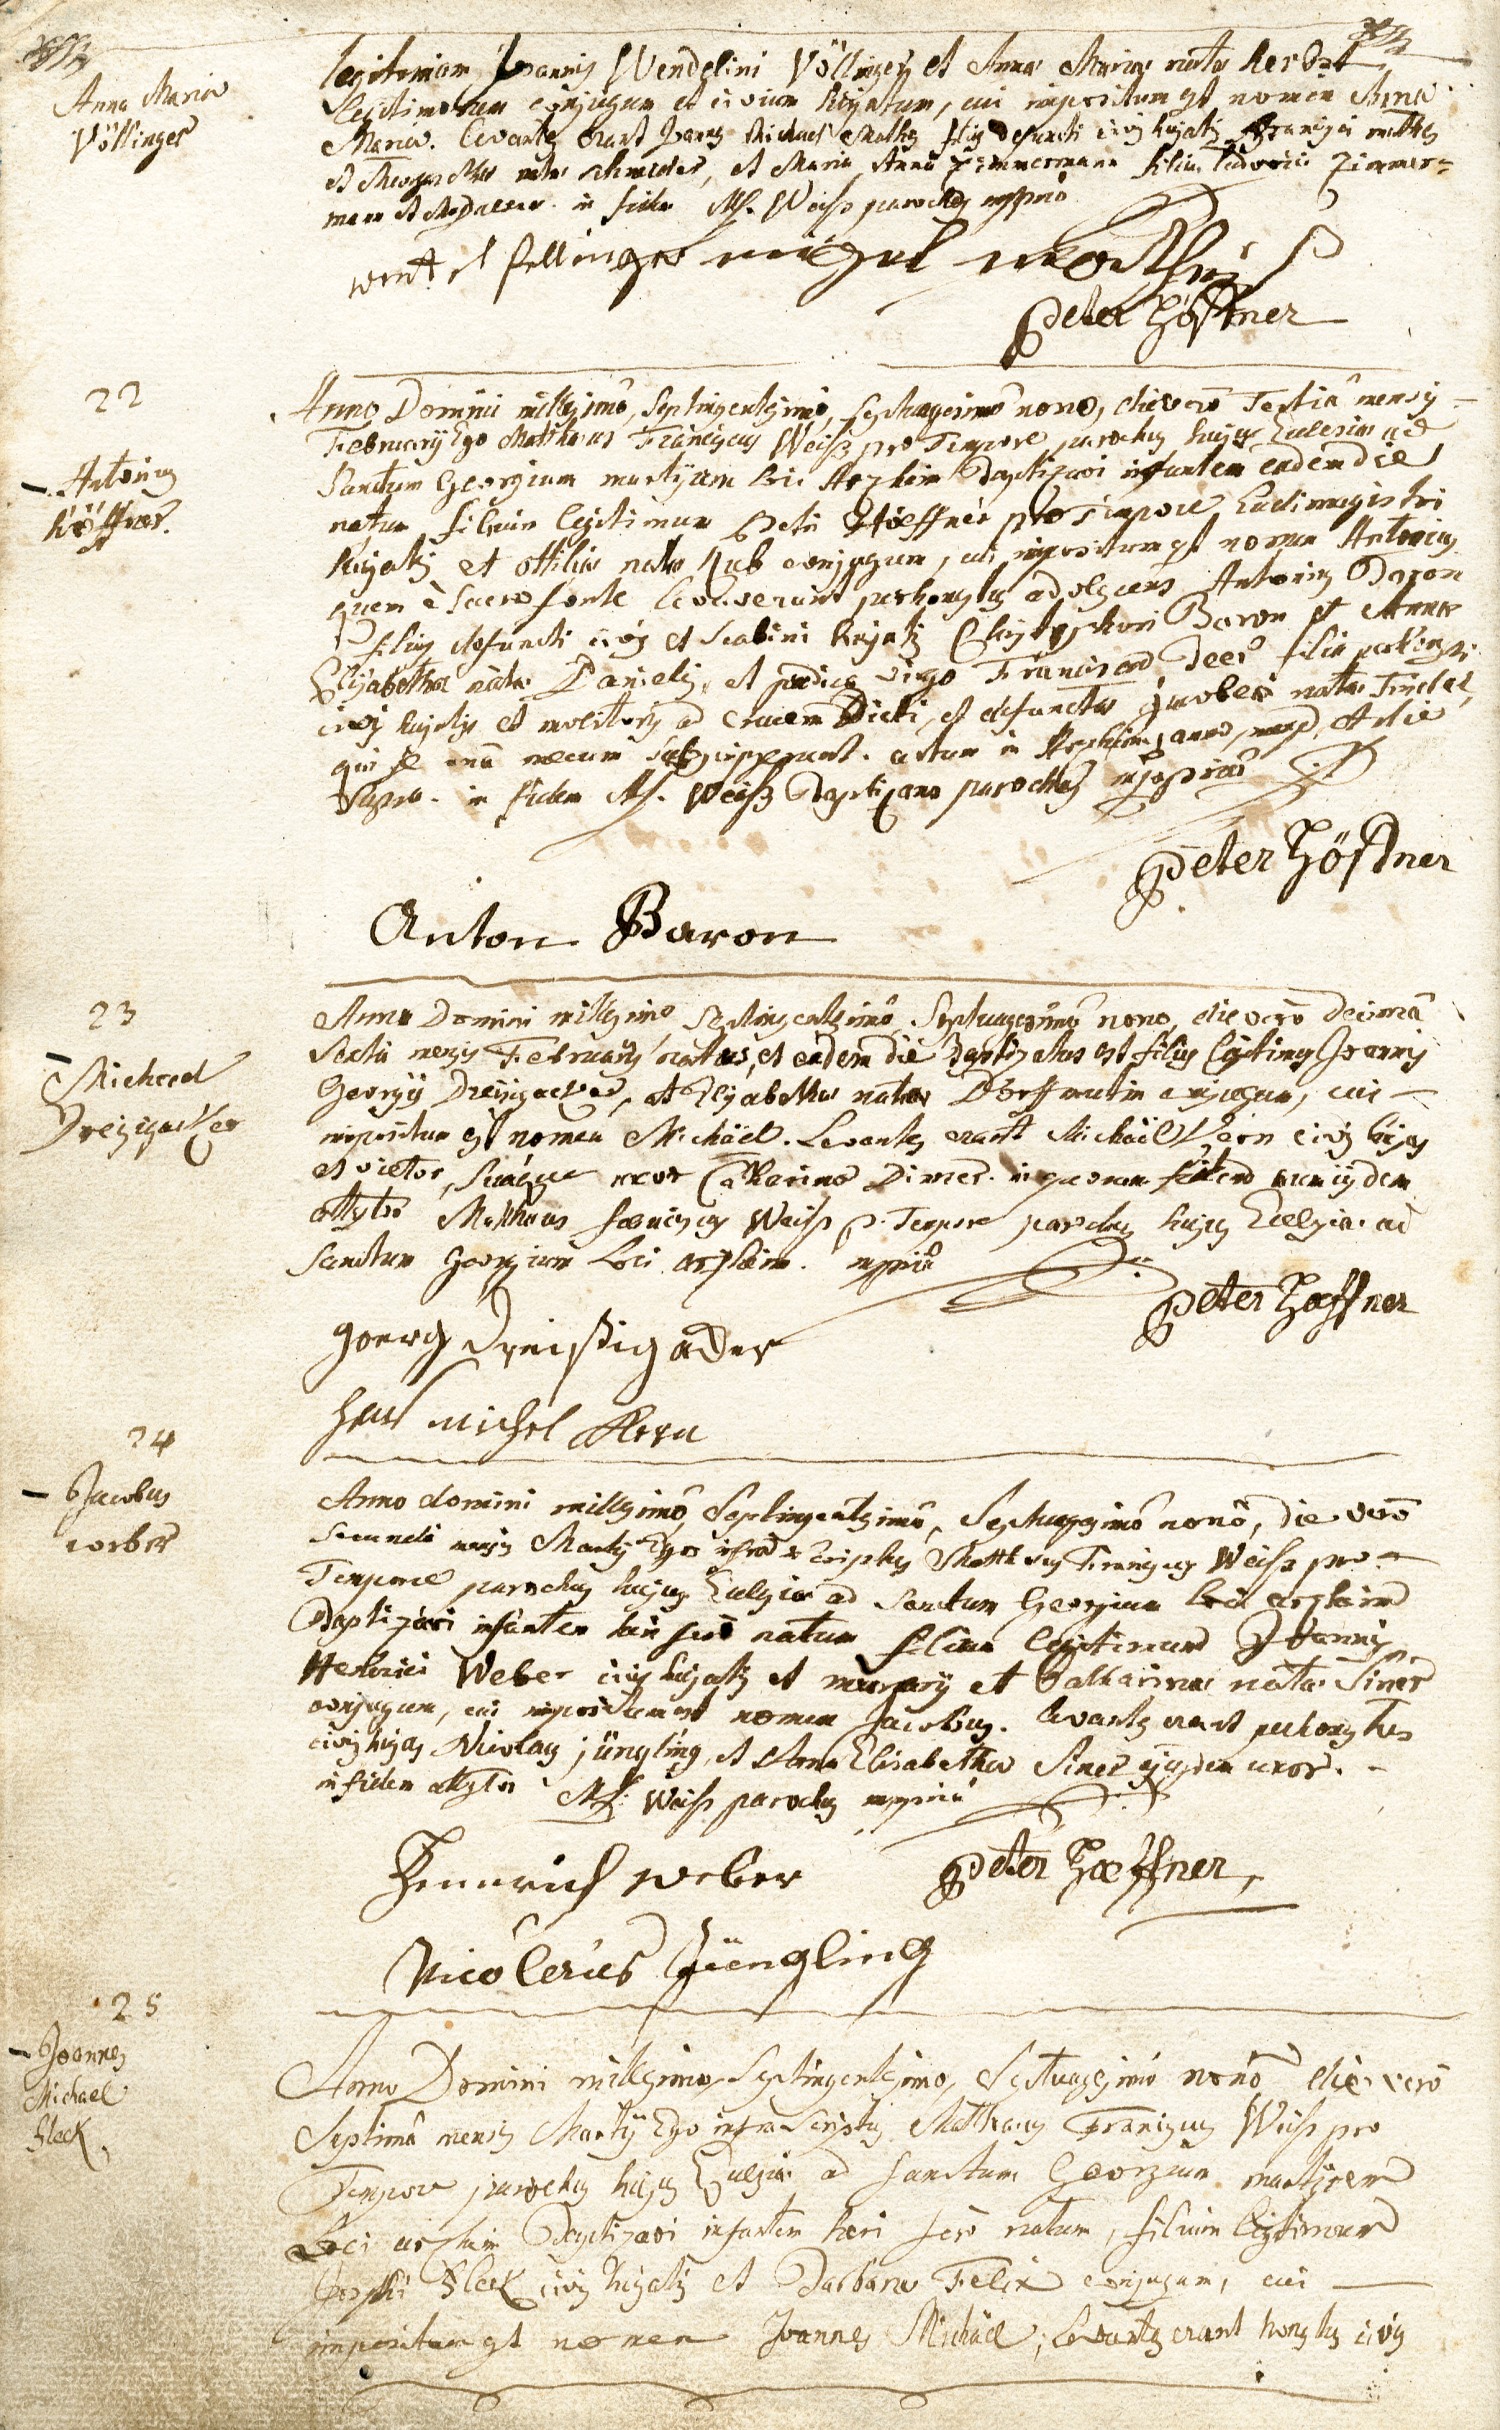 Anna Maria
Völlinger
legitimam Joannis Wendelini Völlinger et Anna Maria nata Herdat
legitimorum conjugum et civium hujatum, cui impositum est nomen Anna
Maria. Levantes erant Joannes Michael Mathes filius defuncti civis hujatis Francisci mathes
et nata Schneider, et Maria Anna Zimmermann filia Ludovici Zimmer=
man et in fidem Mf. Weiss parochus mppriâ
went el fellinger migel
Peter Höffner
22
Antonius
Höffner.
Anno Domini millesimô, septingentesimô, septuagesimô nonô, die verô Tertiâ mensis
Februarij Ego Matthaeus Franciscus Weiss pro Tempore parochus hujus Ecclesiae ad
Sanctum Georgium martyrem loci Arzheim Baptizavi infantem eadem die
natum filium legitimum Petri Höeffner pro Tempore Ludimagistri
hujatis et ottiliae nata conjugum, cui impositum est nomen Antonius
quem è sacro fonte levaverunt perhonestus adolescens Antonius Baron
filius defuncti civis et scabini hujatis Christophori Baron et Anna
Elisabetha nata Danielis, et pudica virgo Francisca Deer filia perhonesti
civis hujatis et molitoris ad crucem Dicti, et defuncta Jacobea nata
qui se unâ mecum subscripserunt. actum in Arzheim, anno, mense, et die
supra. in fidem Mf. Weiss Baptizans parochus mppriâ
Peter Höffner
Anton Baron
23
Michael
Dreizigacker
Anno Domini millesimo septingentesimô, septuagesimô nonô, die verô decimâ
sextâ mensis Februarij natus, et eadem die Baptizatus est filius legitimus Joannis
Georgij Dreisigacker, et Elisabetha nata Dörf conjugum, cui
impositum est nomen Michäel. Levantes erant Michäel Kern civis hujas
et vietor, suaque uxor Catharina Dimer. in quorum fidem
attestor Matthaeus franciscus Weiss p. Tempore parochus hujus Ecclesiae ad
Sanctum Georgium loci arzheim. mppriâ
Peter Hoeffner
Goerg Dreissigacker
Hans Michel Kern
24
Jacobus
weber
Anno domini millesimô, septingentesimô, septuagesimô nonô, die verô
secundâ mensis Martij Ego infra scriptus Matthaeus Franciscus Weiss pro
Tempore parochus hujus Ecclesiae ad Sanctum Georgium loci arzheim
Baptizavi infantem heri serô natum filium legitimum Joannis
Henrici Weber civis hujatis et murarij et Catharina nata Siner
conjugum, cui impositum est nomen Jacobus. Levantes erant perhonestus
civis hujas Nicolaus jüngling, et Anna Elisabetha Siner ejusdem uxor.
in fidem attestor Mf. Weiss parochus mppriâ
Heinrich weber Peter Hoeffner
Nicolerus Jüengling
25
Joannes
Michael
fleck
Anno Domini millesimo, septingentesimo, septuagesimô nonô die verô
Septimâ mensis Martij Ego infra scriptus Matthaeus Franciscus Weiss pro
Tempore parochus hujus Ecclesiae ad sanctum Georgium martyrem
Loci arzheim Baptizavi infantem heri serô natum, filium legitimum
Josephi Fleck civis hujatis et Barbara Felix conjugum, cui
impositum est nomen Joannes Michäel; Levantes erant honestus civis